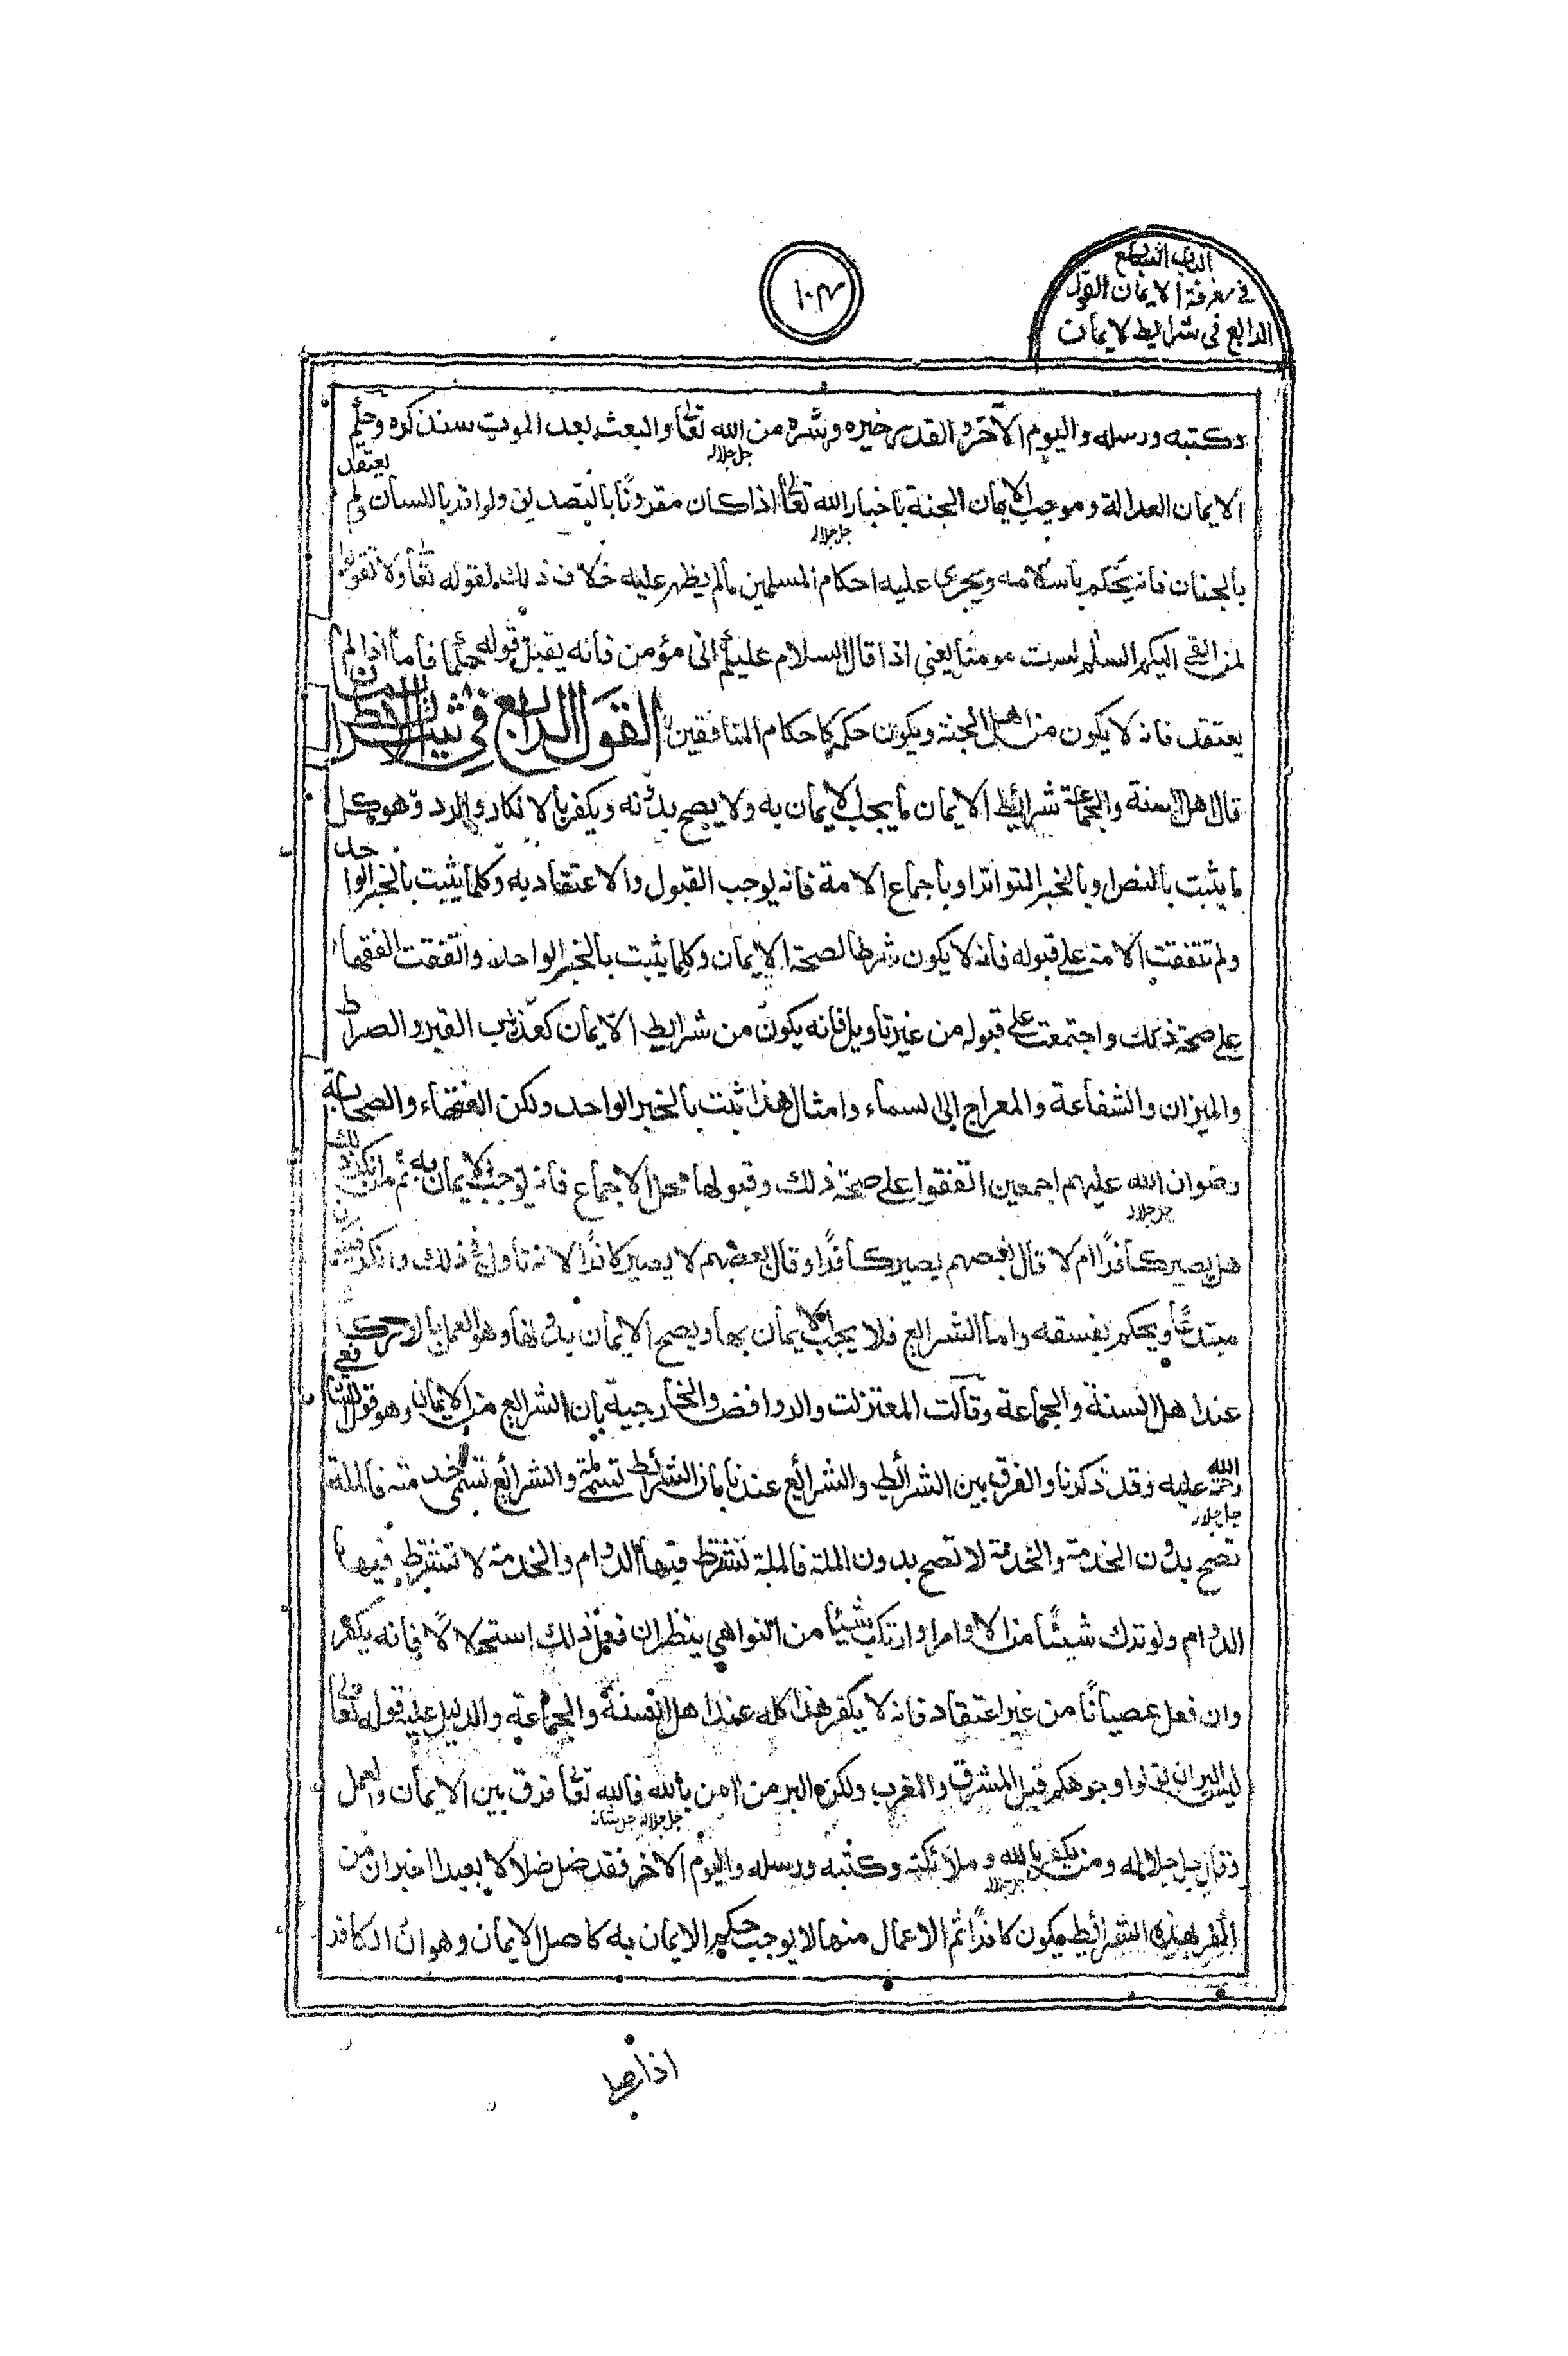 الباب السابع
في معرفة الايمان القول
الرابع في شرايط لايمان
١٠٣
وكتبه ورسله واليوم الآخر والقدر خيره وشره من الله تعالى والبعث بعد الموت سنذكره وحكم
جل جلاله
الايمان العدالة وموجب الايمان الجنة باخبار الله تعالى اذا كان مقرونًا بالتصديق ولو اقر باللسان ولم يعتقد
جل جلاله
بالجنان فانه يحكم باسلامه ويجري عليه احكام المسلمين مالم يظهر عليه خلاف ذلك لقوله تعالى ولا تقولوا
لمن القى اليكم السلم لست مومنا يعني اذا قال السلام عليكم اني مؤمن فانه يقبل قوله حكما فاما اذا لم
يعتقد فانه لا يكون من اهل الجنة ويكون حكمه كاحكام المنافقين القول الرابع في شرايط الايمان
قال اهل السنة والجماعة شرائط الايمان ما يجب الايمان به ولا يصح بدونه ويكفر بالانكار والرد وهو كل
ما يثبت بالنص او بالخبر المتواتر او باجماع الامة فانه يوجب القبول والاعتقاد به وكلما يثبت بالخبر الواحد
ولم تتفقت الامة على قبوله فانه لا يكون شرطا لصحة الايمان وكلما يثبت بالخبر الواحد واتفقت الفقهاء
على صحة ذلك واجتمعت على قبوله من غير تاويل فانه يكون من شرايط الايمان كعذاب القبر والصراط
والميزان والشفاعة والمعراج الى لسماء وامثال هذا ثبت بالخبر الواحد ولكن الفقهاء والصحابة
رضوان الله عليهم اجمعين اتفقوا على صحة ذلك وقبولها محل الاجماع فانه يوجب الايمان به ثم من انكر ذلك
جل جلاله
هل يصير كافرًا ام لا قال بعضهم يصير كافرًا وقال بعضهم لا يصير كافرًا لانه تاول في ذلك وانكر فيكون
مبتدعًا ويحكم بفسقه واما الشرايع فلا يجب الايمان بها ويصح الايمان بدونها وهو العمل بالاركان
عند اهل السنة والجماعة وقالت المعتزلت والروافض والخارجية بان الشرايع من الايمان وهو قول الشافعي
رحمة الله عليه وقد ذكرنا والفرق بين الشرائط والشرائع عندنا بان الشرائط تسمى ملة والشرائع تسمى خدمته فالملة
جل جلاله
تصح بدون الخدمة والخدمة لا تصح بدون الملة فالملة تشترط فيها الدوام والخدمة لا تشترط فيها
الدوام ولو ترك شيئًا من الاوامر او ارتكب شيئًا من النواهي ينظر ان فعل ذلك استحلالًا فانه يكفر
وان فعل عصيانًا من غير اعتقاد فانه لا يكفر هذا كله عند اهل السنة والجماعة والدليل عليه قوله تعالى
ليس البر ان تولوا وجوهكم قبل المشرق والمغرب ولكن البر من امن بالله فالله تعالى فرق بين الايمان والعمل
جل جلاله جل شانه
وقال جل جلاله ومن يكفر بالله وملائكته وكتبه ورسله واليوم الاخر فقد ضل ضلالا بعيدا اخبر ان من
جل جلاله
بهذه الشرائط يكون كافرًا ثم الاعمال منها لا يوجب حكم الايمان به كاصل الايمان وهو ان الكافر
اذا